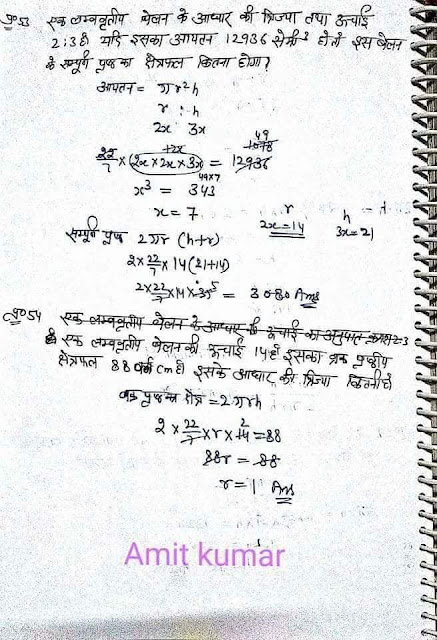 प्र०53 एक लम्बवृत्तीय बेलन के आधार की त्रिज्या तथा ऊचाई
2:3 है यदि इसका आयतन 12936 सेमी³ हो तो इस बेलन
के सम्पूर्ण पृष्ठ का क्षेत्रफल कितना होगा?
आयतन = πr²h
r : h
2x 3x
22/7 × (2x × 2x × 3x) = 12936
x³ = 343
x = 7
r h
2x=14 3x=21
सम्पूर्ण पृष्ठ 2πr (h+r)
2×22/7×14(21+14)
2×22/7×14×35 = 3080 Ans
प्र०54 एक लम्बवृत्तीय बेलन के आधार की ऊचाई का अनुपात 2:3
है एक लम्बवृत्तीय बेलन की ऊचाई 14 है इसका वक्र पृष्ठीय
क्षेत्रफल 88 वर्ग cm है इसके आधार की त्रिज्या कितनी है
वक्र पृष्ठ का क्षेत्र = 2πrh
2 × 22/7 × r × 14 = 88
88r = 88
r = 1 Ans
Amit kumar